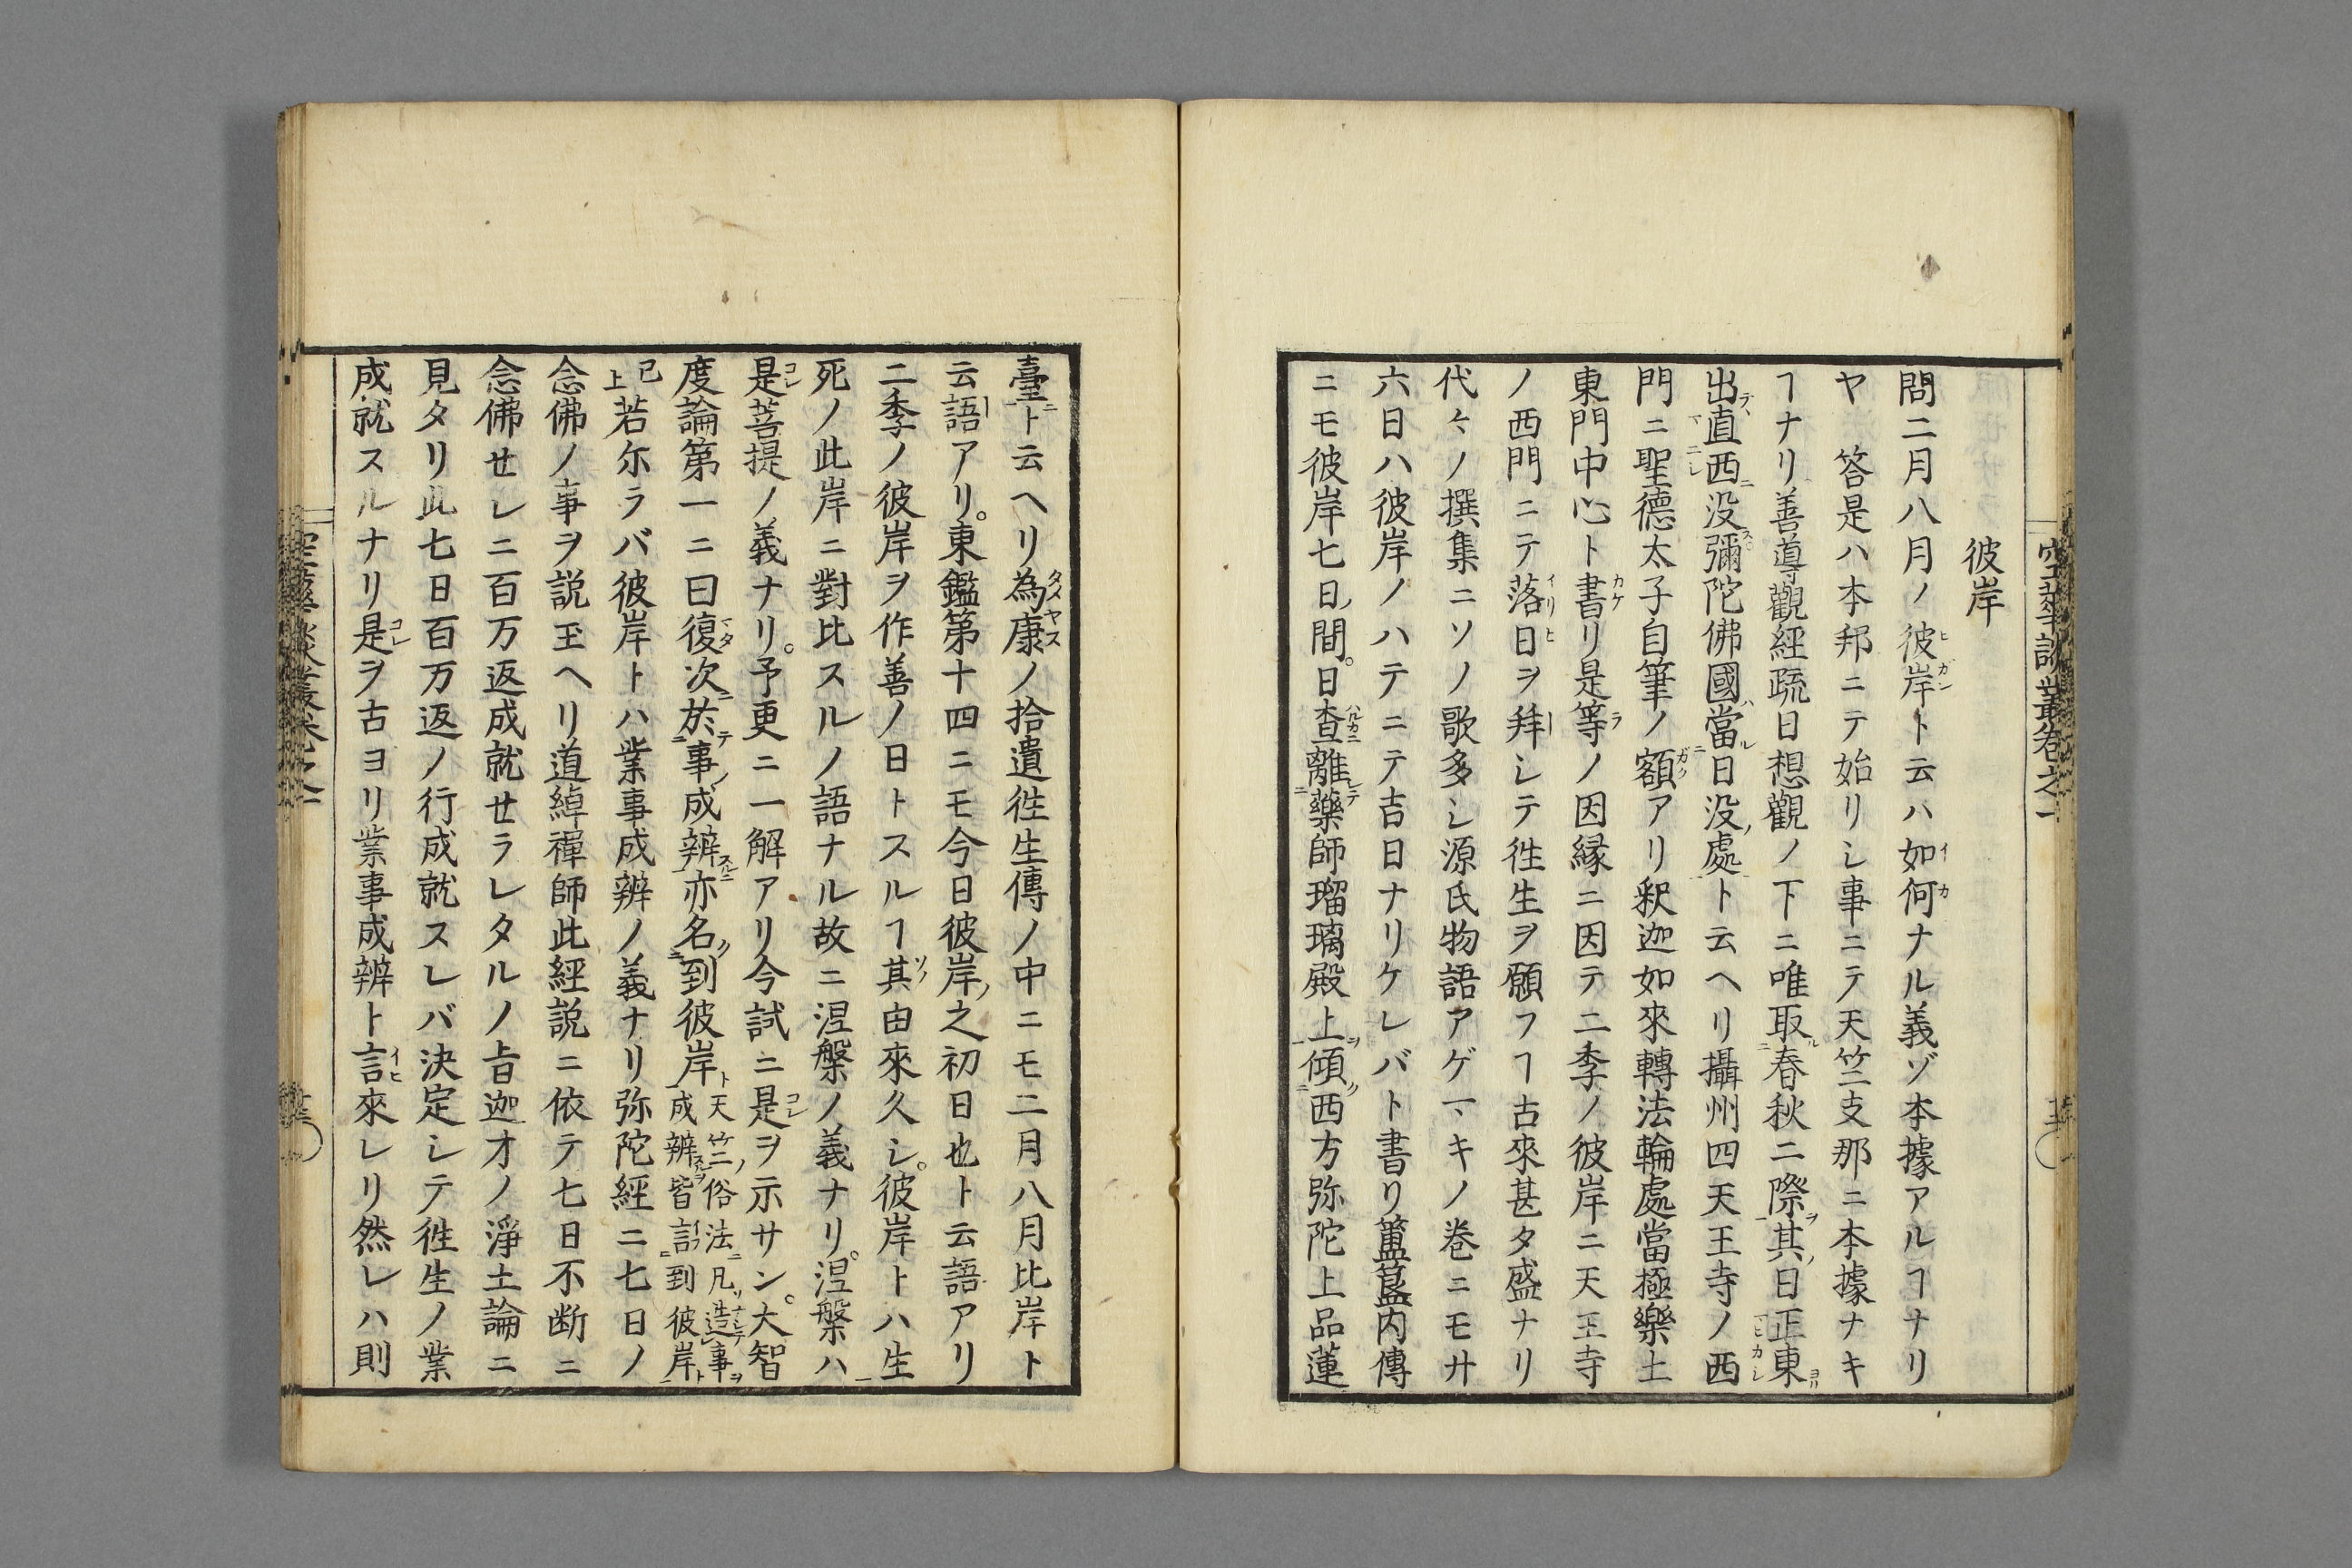 空華談叢卷之一
彼岸
問二月八月ノ彼岸ト云ハ如何ナル義ゾ本據アルヿナリ
ヤ　答是ハ本邦ニテ始リシ事ニテ天竺支那ニ本據ナキ
ヿナリ善導觀經疏日想觀ノ下ニ唯取春秋二際其日正東
出直西没彌陀佛國當日没處ト云ヘリ攝州四天王寺ノ西
門ニ聖德太子自筆ノ額アリ釈迦如來轉法輪處當極樂土
東門中心ト書リ是等ノ因縁ニ因テ二季ノ彼岸ニ天王寺
ノ西門ニテ落日ヲ拜シテ徃生ヲ願フヿ古來甚タ盛ナリ
代々ノ撰集ニソノ歌多シ源氏物語アゲマキノ巻ニモ廿
六日ハ彼岸ノハテニテ吉日ナリケレバト書リ簠簋内傳
ニモ彼岸七日ノ間。日杳離藥師瑠璃殿上傾西方弥陀上品蓮
臺ト云ヘリ為康ノ拾遺徃生傳ノ中ニモ二月八月比岸ト
云語アリ。東鑑第十四ニモ今日彼岸之初日也ト云語アリ
二季ノ彼岸ヲ作善ノ日トスルヿ其由來久シ。彼岸トハ生
死ノ此岸ニ對比スルノ語ナル故ニ涅槃ノ義ナリ。涅槃ハ
是菩提ノ義ナリ。予更ニ一解アリ今試ニ是ヲ示サン。大智
度論第一ニ曰復次於事成辨亦名到彼岸天竺俗法凡造事成辨皆言到彼岸
已上若尔ラバ彼岸トハ業事成辨ノ義ナリ弥陀經ニ七日ノ
念佛ノ事ヲ説玉ヘリ道綽禪師此經説ニ依テ七日不断ニ
念佛セシニ百万返成就セラレタルノ旨迦才ノ淨土論ニ
見タリ此七日百万返ノ行成就スレバ決定シテ徃生ノ業
成就スルナリ是ヲ古ヨリ業事成辨ト言來レリ然レハ則